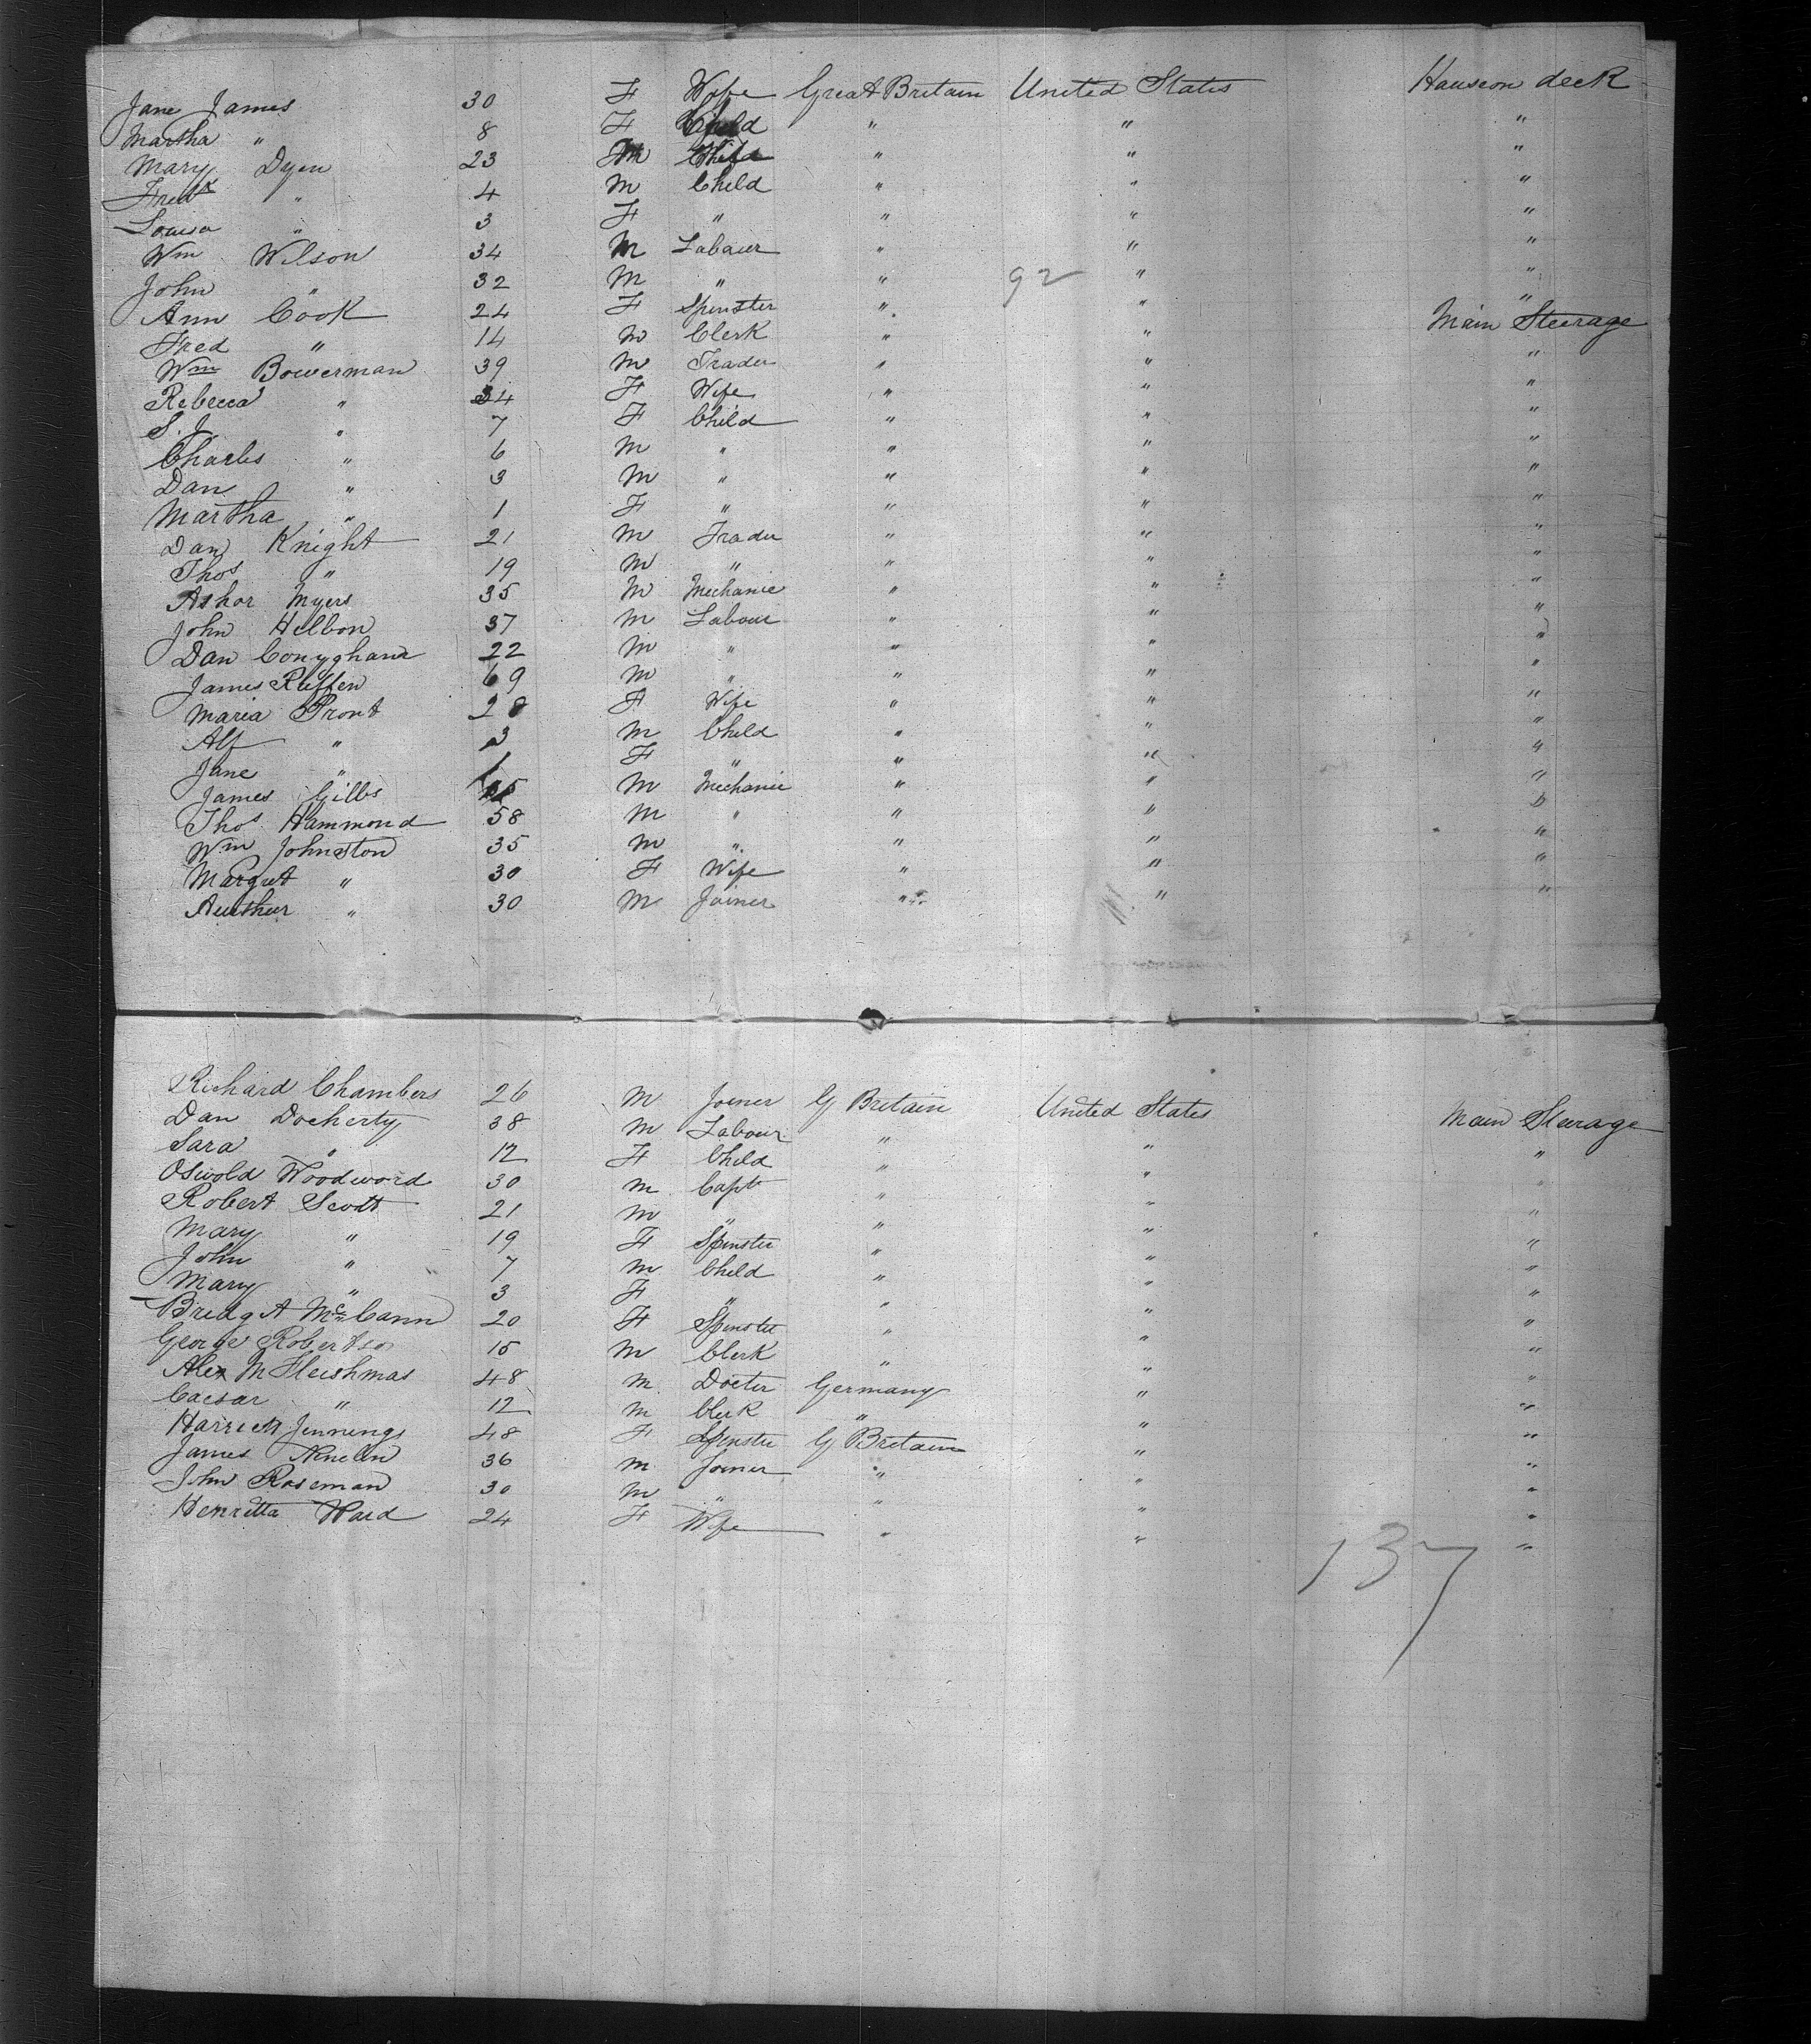 Jane James 30 F Wife Great Britain United States Hauseon deck
Martha " 8 F Child " " "
Mary Dyen 23 Wife " " "
Fredk " 4 M Child " " "
Louisa " 3 F " " " "
Wm Wilson 34 M Labour " " "
John " 32 M " " 92 " "
Ann Cook 24 F Spinster " " "
Fred " 14 M Clerk " " Main Steerage
Wm Bowerman 39 M Trader " " "
Rebecca " 34 F Wife " " "
S. J. " 7 F Child " " "
Charles " 6 M " " " "
Dan " 3 M " " " "
Martha " 1 F " " " "
Dan Knight 21 M Trader " " "
Thos " 19 M " " " "
Ashor Myers 35 M Mechanic " " "
John Helbon 37 M Labour " " "
Dan Conygham 22 M " " " "
James Ruffen 69 M " " " "
Maria Pront 28 F Wife " " "
Alf " 3 M Child " " "
Jane " 1 F " " " "
James Gibbs M Mechanic " " "
Thos Hammond 58 M " " " "
Wm Johnston 35 M " " " "
Margret " 30 F Wife " " "
Aurthur " 30 M Joiner " " "
Richard Chambers 26 M Joiner G Britain United States Main Steerage
Dan Docherty 38 M Labour " " "
Sara " 12 F Child " " "
Oswold Woodword 30 M Capt " " "
Robert Scott 21 M " " " "
Mary " 19 F Spinster " " "
John " 7 M Child " " "
Mary " 3 F " " " "
Bridgt McCann 20 F Spinster " " "
George Robertson 15 M Clerk " " "
Alex M Fleishmas 48 M Docter Germany " "
Caesar " 12 M Clerk " " "
Harriett Jennings 48 F Spinster G Britain " "
James 36 M Joiner " " "
John Roseman 30 M " " " "
Henritta Ward 24 F Wife " " "
137